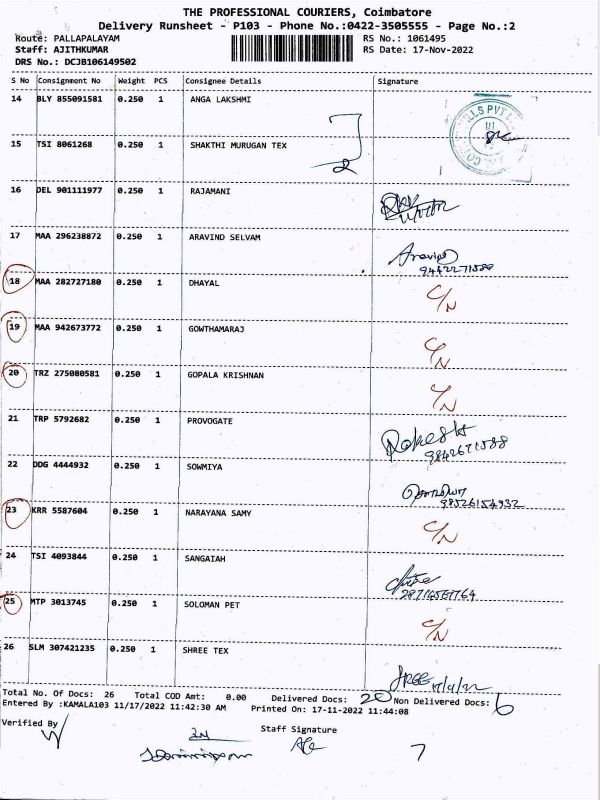 THE PROFESSIONAL COURIERS, Coimbatore
Delivery Runsheet - P103 - Phone No.:0422-3505555 - Page No.:2
Route: PALLAPALAYAM RS No.: 1061495
Staff: AJITHKUMAR RS Date: 17-Nov-2022
DRS No.: DCJB106149502
S No Consignment No Weight PCS Consignee Details Signature
14 BLY 855091581 0.250 1 ANGA LAKSHMI
15 TSI 8061268 0.250 1 SHAKTHI MURUGAN TEX
16 DEL 901111977 0.250 1 RAJAMANI
17 MAA 296238872 0.250 1 ARAVIND SELVAM Aravind
18 MAA 282727180 0.250 1 DHAYAL C/N
19 MAA 942673772 0.250 1 GOWTHAMARAJ C/N
20 TRZ 275080581 0.250 1 GOPALA KRISHNAN C/N
21 TRP 5792682 0.250 1 PROVOGATE
22 DDG 4444932 0.250 1 SOWMIYA
23 KRR 5587604 0.250 1 NARAYANA SAMY C/N
24 TSI 4093844 0.250 1 SANGAIAH
25 MTP 3013745 0.250 1 SOLOMAN PET C/N
26 SLM 307421235 0.250 1 SHREE TEX
Total No. Of Docs: 26 Total COD Amt: 0.00 Delivered Docs: 20 Non Delivered Docs: 6
Entered By :KAMALA103 11/17/2022 11:42:30 AM Printed On: 17-11-2022 11:44:08
Verified By Staff Signature
7